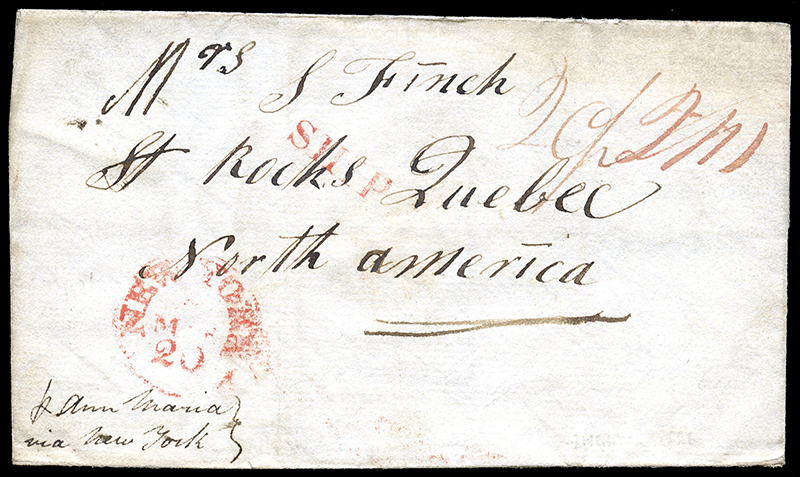 Mrs S Finch
St Rocks Quebec
North america
SHIP
NEW YORK
20
p Ann Maria
via New York